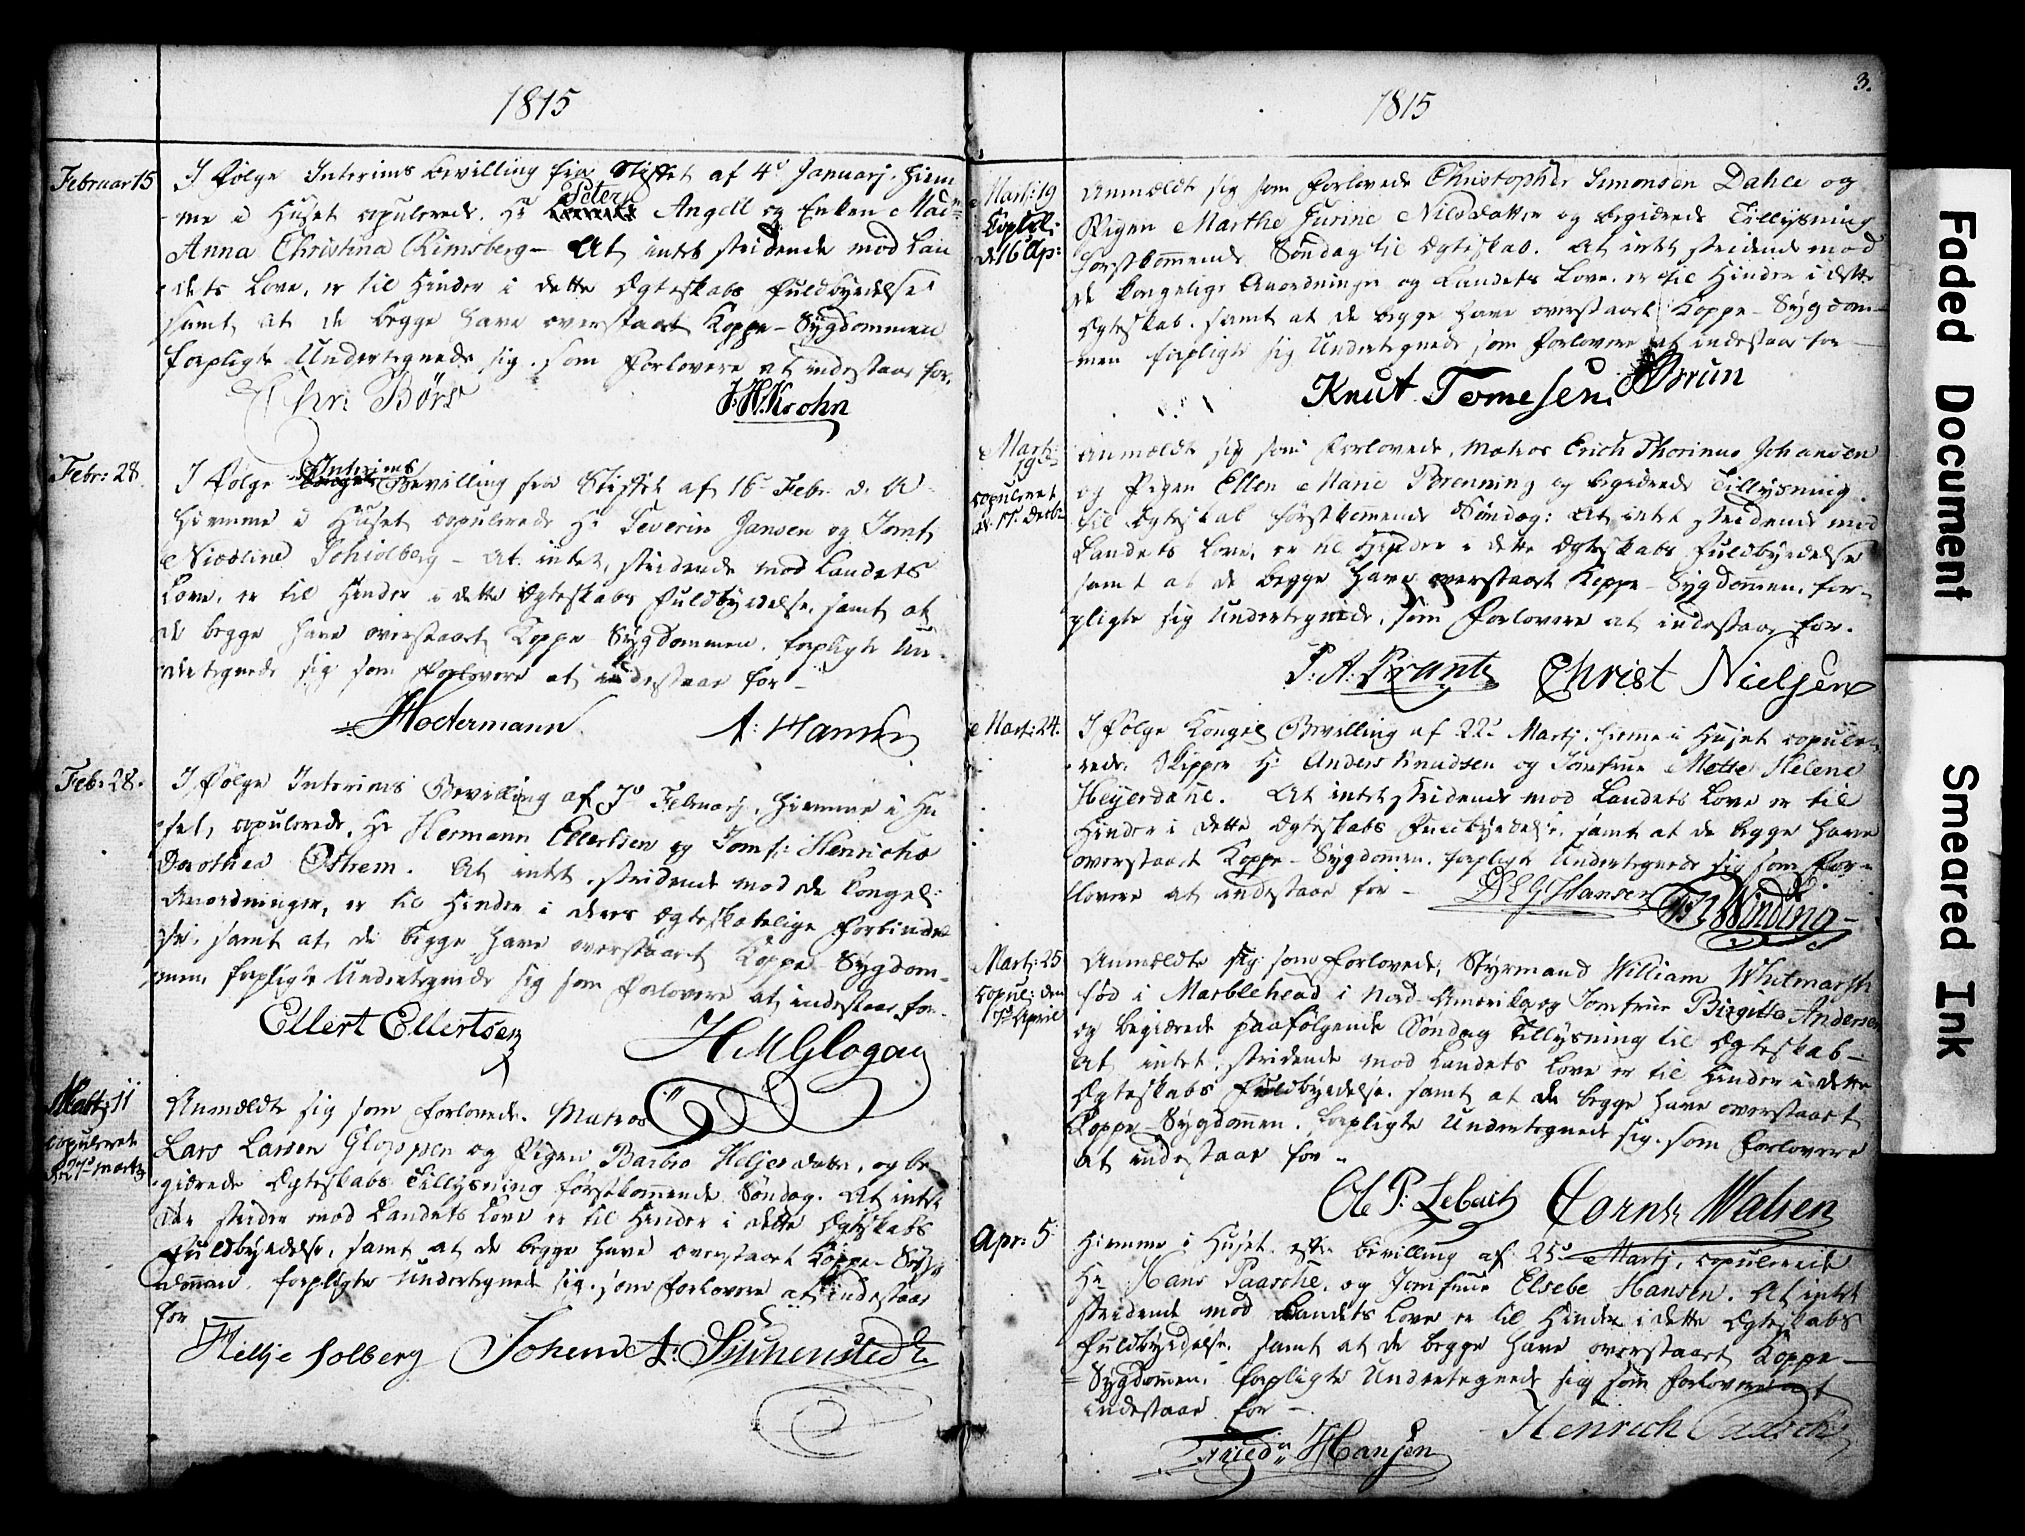 1815
Februar 15
I Følge Interims Bevilling fra Stiftet af 4de Januarj. hiem-
me i Huset copulerede. Hr Petersen Angell og Enken Madme
Anna Christina Rimsberg - At intet stridende mod Lan
dets Love, er til Hinder i dette Ægteskabs Fuldbyrdelse
samt at de begge have overstaaet Koppe-Sygdommen
forpligte Undertegnede sig som Forlovere at indestaae for.
Chr: Börs J. H. Krohn
Febr: 28.
I Følge Interims Bevilling fra Stiftet af 16de Febr. d. A.
hiemme i Huset copulerede Hr Severin Jansen og Jomf:
Nicoline Schiolberg - At intet, stridende mod Landets
Love, er til Hinder i dette Ægteskabs Fuldbyrdelse, samt at
de begge have overstaaet Koppe-Sygdommen, forpligte Un-
dertegnede sig som Forlovere at indestaae for -
Holtermann A: Hansen
Feb: 28.
I Følge Interims Bevilling af 7de Februarj, hiemme i Hu-
set, copulerede, Hr Hermann Ellertsen og Jomf: Henricha
Dorothea Ostrem. At intet stridende mod de kongel:
Anordninger, er til Hinder i deres Ægteskabelige Forbindel
se, samt at de begge have overstaaet Koppe Sygdom-
men, forpligte Undertegnede sig som Forlovere at indestaae for.
Ellert Ellertsen H M Glogau
Martj 11
copuleret
d. 27de Martz
Anmældte sig som Forlovede. Matros
Lars Larsen Gloppen og Pigen Barbro Heljesdatter, og be-
giærede Ægteskabs Tillysning førstkommende Søndag. At intet
der strider mod Landets Love er til Hinder i dette Ægteskabs
Fuldbyrdelse, samt at de begge have overstaaet Koppe-Syg
dommen. forpligte Undertegnede sig. som Forlovere at indestaae
for
Hellje Solberg Johan A:
3.
1815
Martj: 19
Copul:
d. 16 Ap:
Anmældte sig som Forlovede Christopher Simonsen Dahle og
Pigen Marthe Jurine Nilsdatter og begiærede Tillysning
førstkommende Søndag til Ægteskab. At intet stridende mod
de kongelige Anordninger og Landets Love er til Hinder i dette
Ægteskab. samt at de begge have overstaaet Koppe-Sygdom-
men forpligte sig Undertegnede som Forlovere at indestaae for
Knut Tomesen. Brun
Martj:
19de
copuleret
d. 17. Decbr
Anmældte sig som Forlovede, Matros Erich Thorinus Johansen
og Pigen Ellen Marie Brenning og begiærede Tillysning
til Ægteskab førstkommende Søndag: At intet stridende mod
Landets Love, er til Hinder i dette Ægteskabs Fuldbyrdelse
samt at de begge have overstaaet Koppe-Sygdommen, for-
pligte sig Undertegnede, som Forlovere at indestaae for.
P. A. Krantz Christ Nielsen
Mart: 24.
I Følge Kongel Bevilling af 22de Martj, hieme i Huset copule-
rede Skipper Hr Anders Knudsen og Jomfrue Mette Helene
Heyerdahl. At intet stridende mod Landets Love er til
Hinder i dette Ægteskabs Fuldbyrdelse, samt at de begge have
overstaaet Koppe-Sygdomen, forpligte Undertegnede sig som For-
lovere at indestaae for - Hansen Winding
Martj: 25
Copul: den
7de April
Anmældte sig som Forlovede, Styrmand William Whitmarsh
fød i Marblehead i Nord-Amerika og Jomfrue Birgitta Andersen
og begiærede paafølgende Søndag Tillysning til Ægteskab -
At intet stridende mod Landets Love er til Hinder i dette
Ægteskabs Fuldbyrdelse. samt at de begge have overstaaet
Koppe-Sygdommen. forpligte Undertegnede sig. som Forlovere
at indestaae for -
Ole P: Lebach Corn Walsen
Apr: 5
Hiemme i Huset efter Bevilling af 25de Martj, copulerede
Hr Hans Paasche, og Jomfrue Elsebe Hansen. At intet
stridende mod Landets Love er til Hinder i dette Ægteskabs
Fuldbyrdelse. samt at de begge have overstaaet Koppe-
Sygdommen. forpligte Undertegnede sig som Forlovere at
indestaae for -
Fried: Hansen Henrich Paasche
Faded Document
Smeared Ink